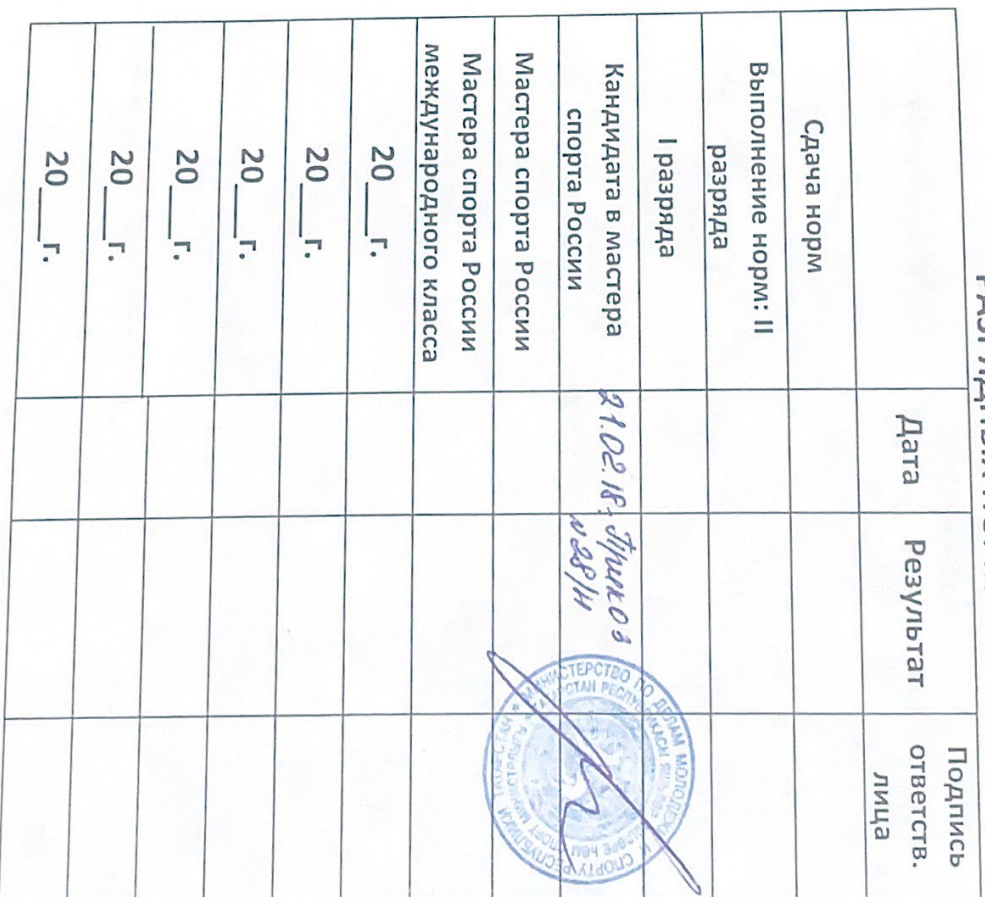 Дата
Результат
Подпись
ответств.
лица
Сдача норм
Выполнение норм: II
разряда
I разряда
Кандидата в мастера
спорта России
21.02.18. Приказ
N 28/Н
МИНИСТЕРСТВО ПО ДЕЛАМ МОЛОДЕЖИ И СПОРТУ РЕСПУБЛИКИ ТАТАРСТАН
Мастера спорта России
Мастера спорта России
международного класса
20___г.
20___г.
20___г.
20___г.
20___г.
20___г.